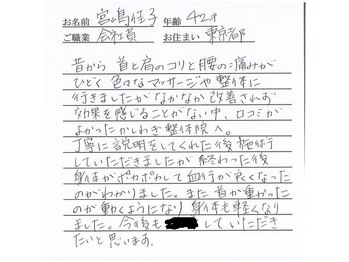 お名前 宮嶋佳子 年齢 42才
ご職業 会社員 お住まい 東京都
昔から 首と肩のコリと腰の痛みが
ひどく 色々なマッサージや整体に
行きましたがなかなか改善されず
効果を感じることがない中、口コミが
よかったかしわぎ整体院へ。
丁寧に説明をしてくれた後施術
していただきましたが 終わった後
身体がポカポカして血行が良くなった
のがわかりました。また首が重かった
のが動くようになり 身体も軽くなり
ました。今後も していただき
たいと思います。